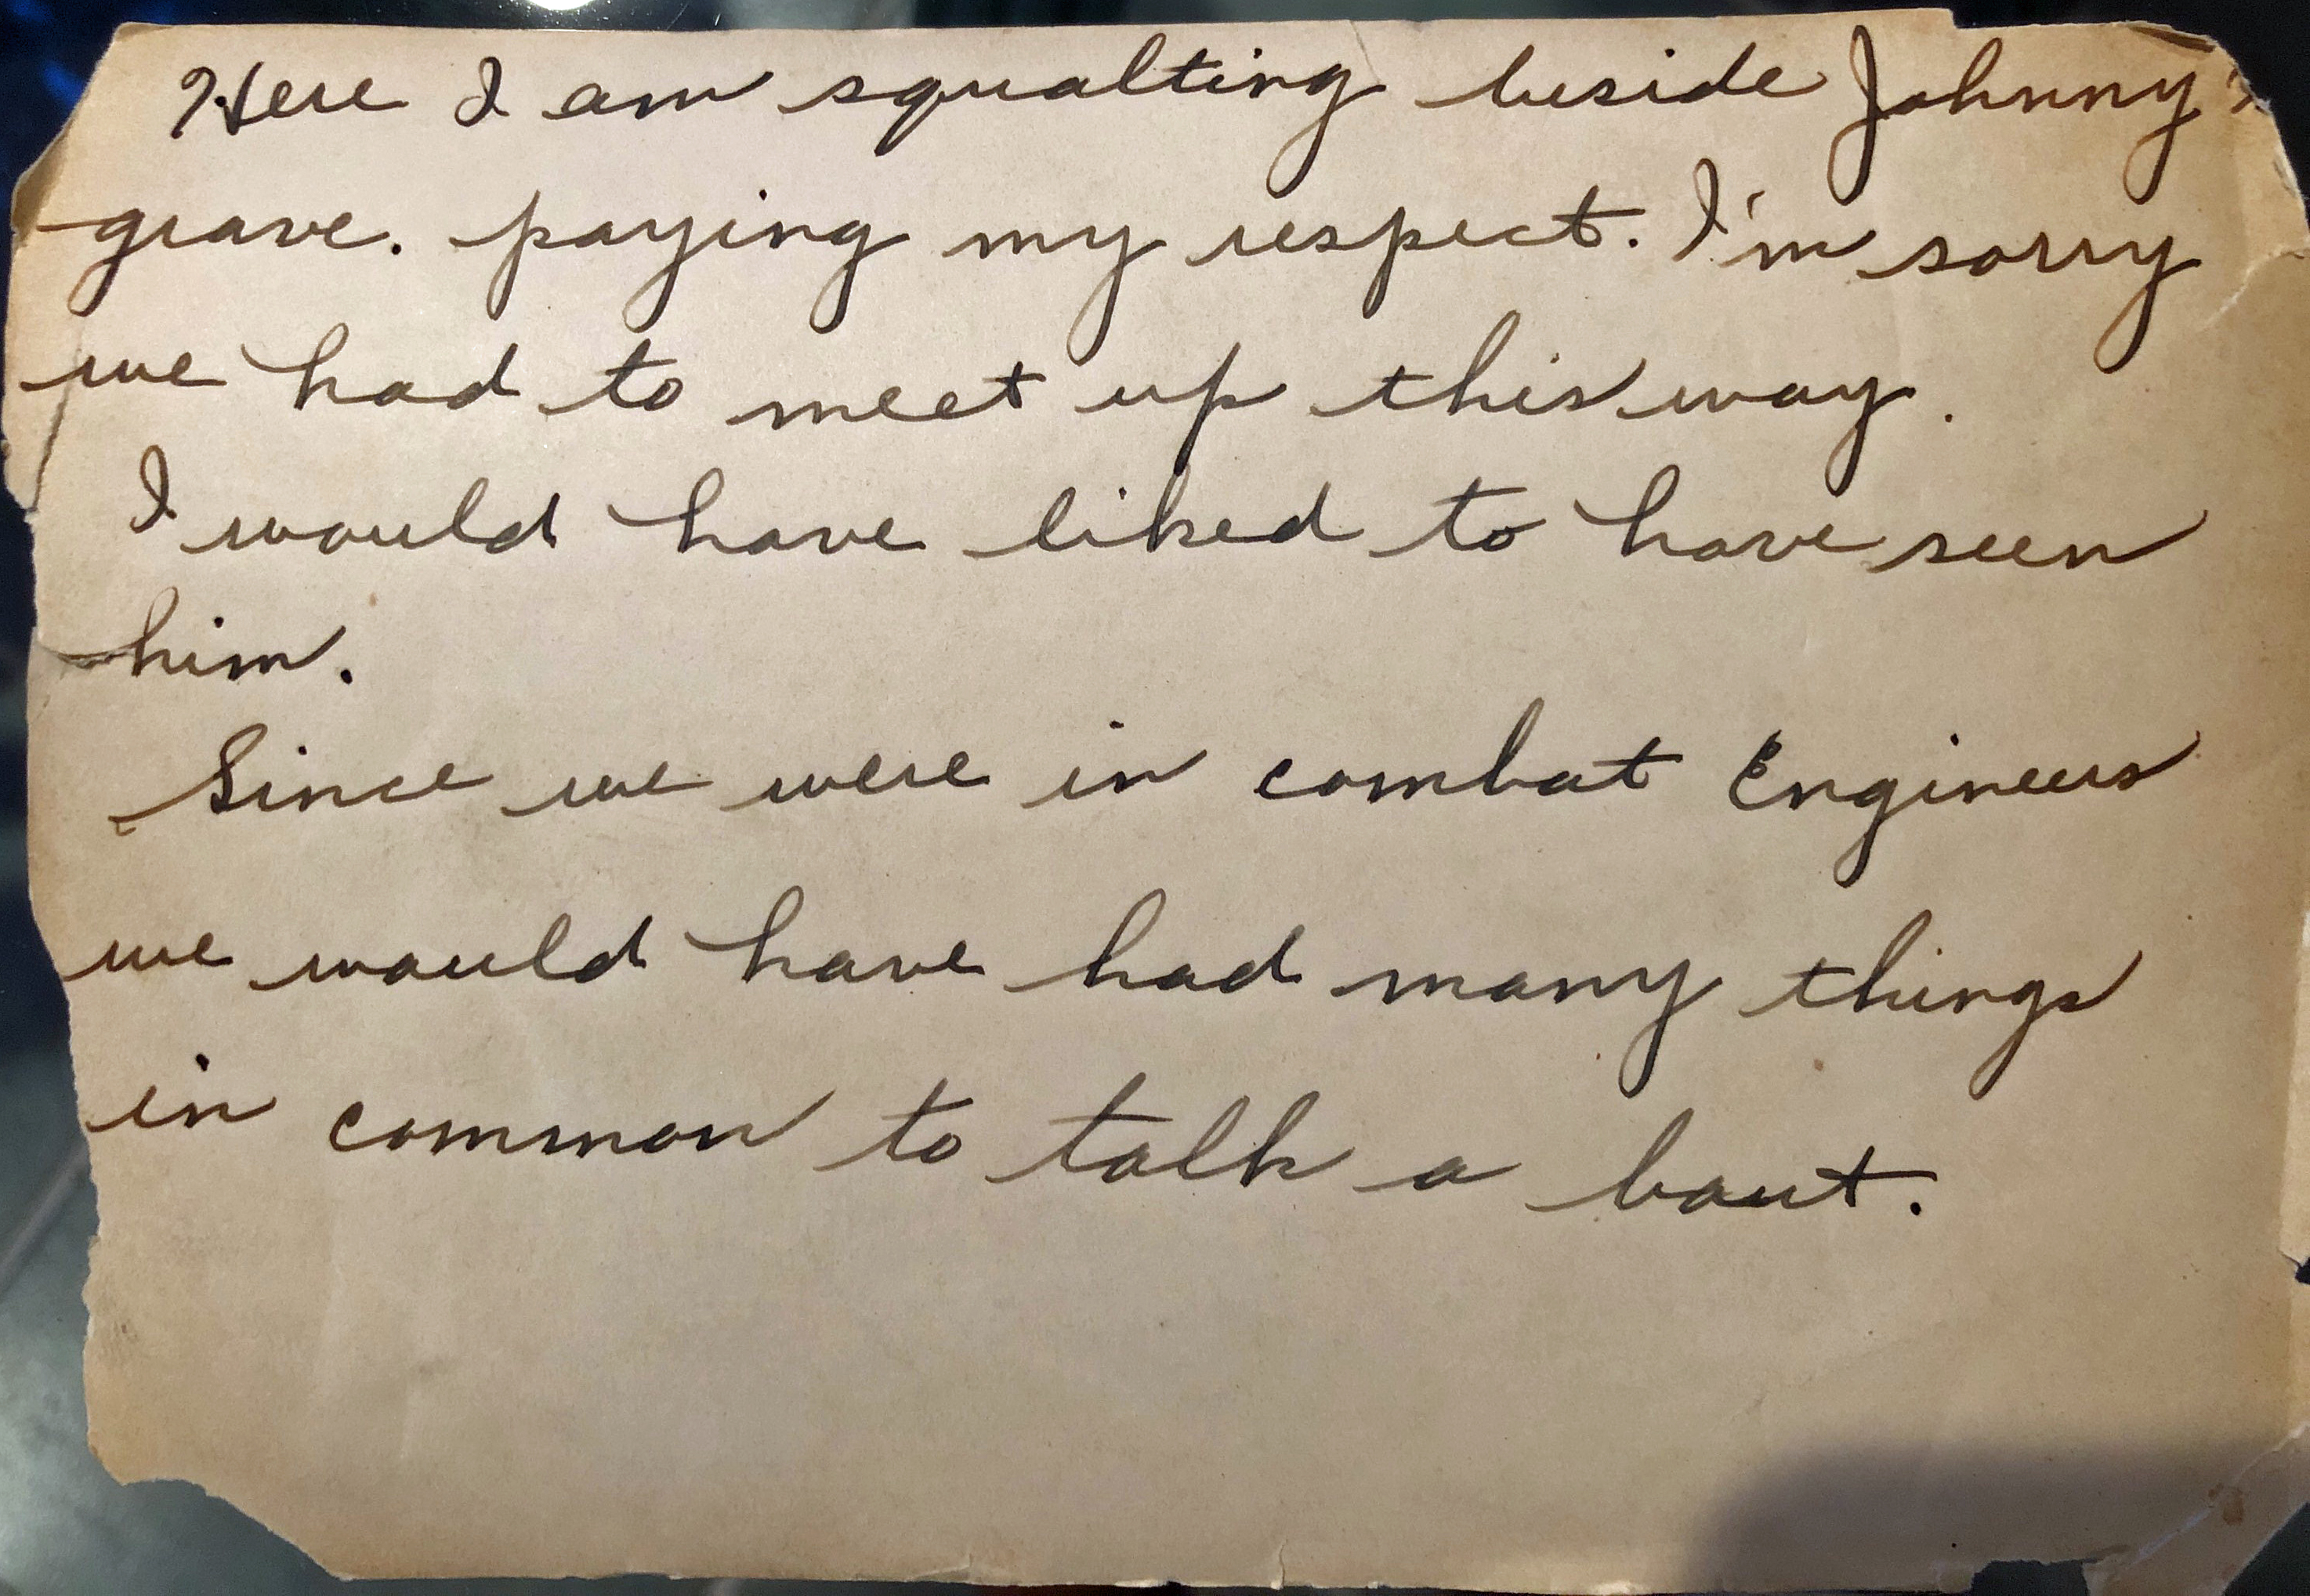 Here I am squatting beside Johnny's
grave. paying my respect. I'm sorry
we had to meet up this way.
I would have liked to have seen
him.
Since we were in combat Engineers
we would have had many things
in common to talk a bout.